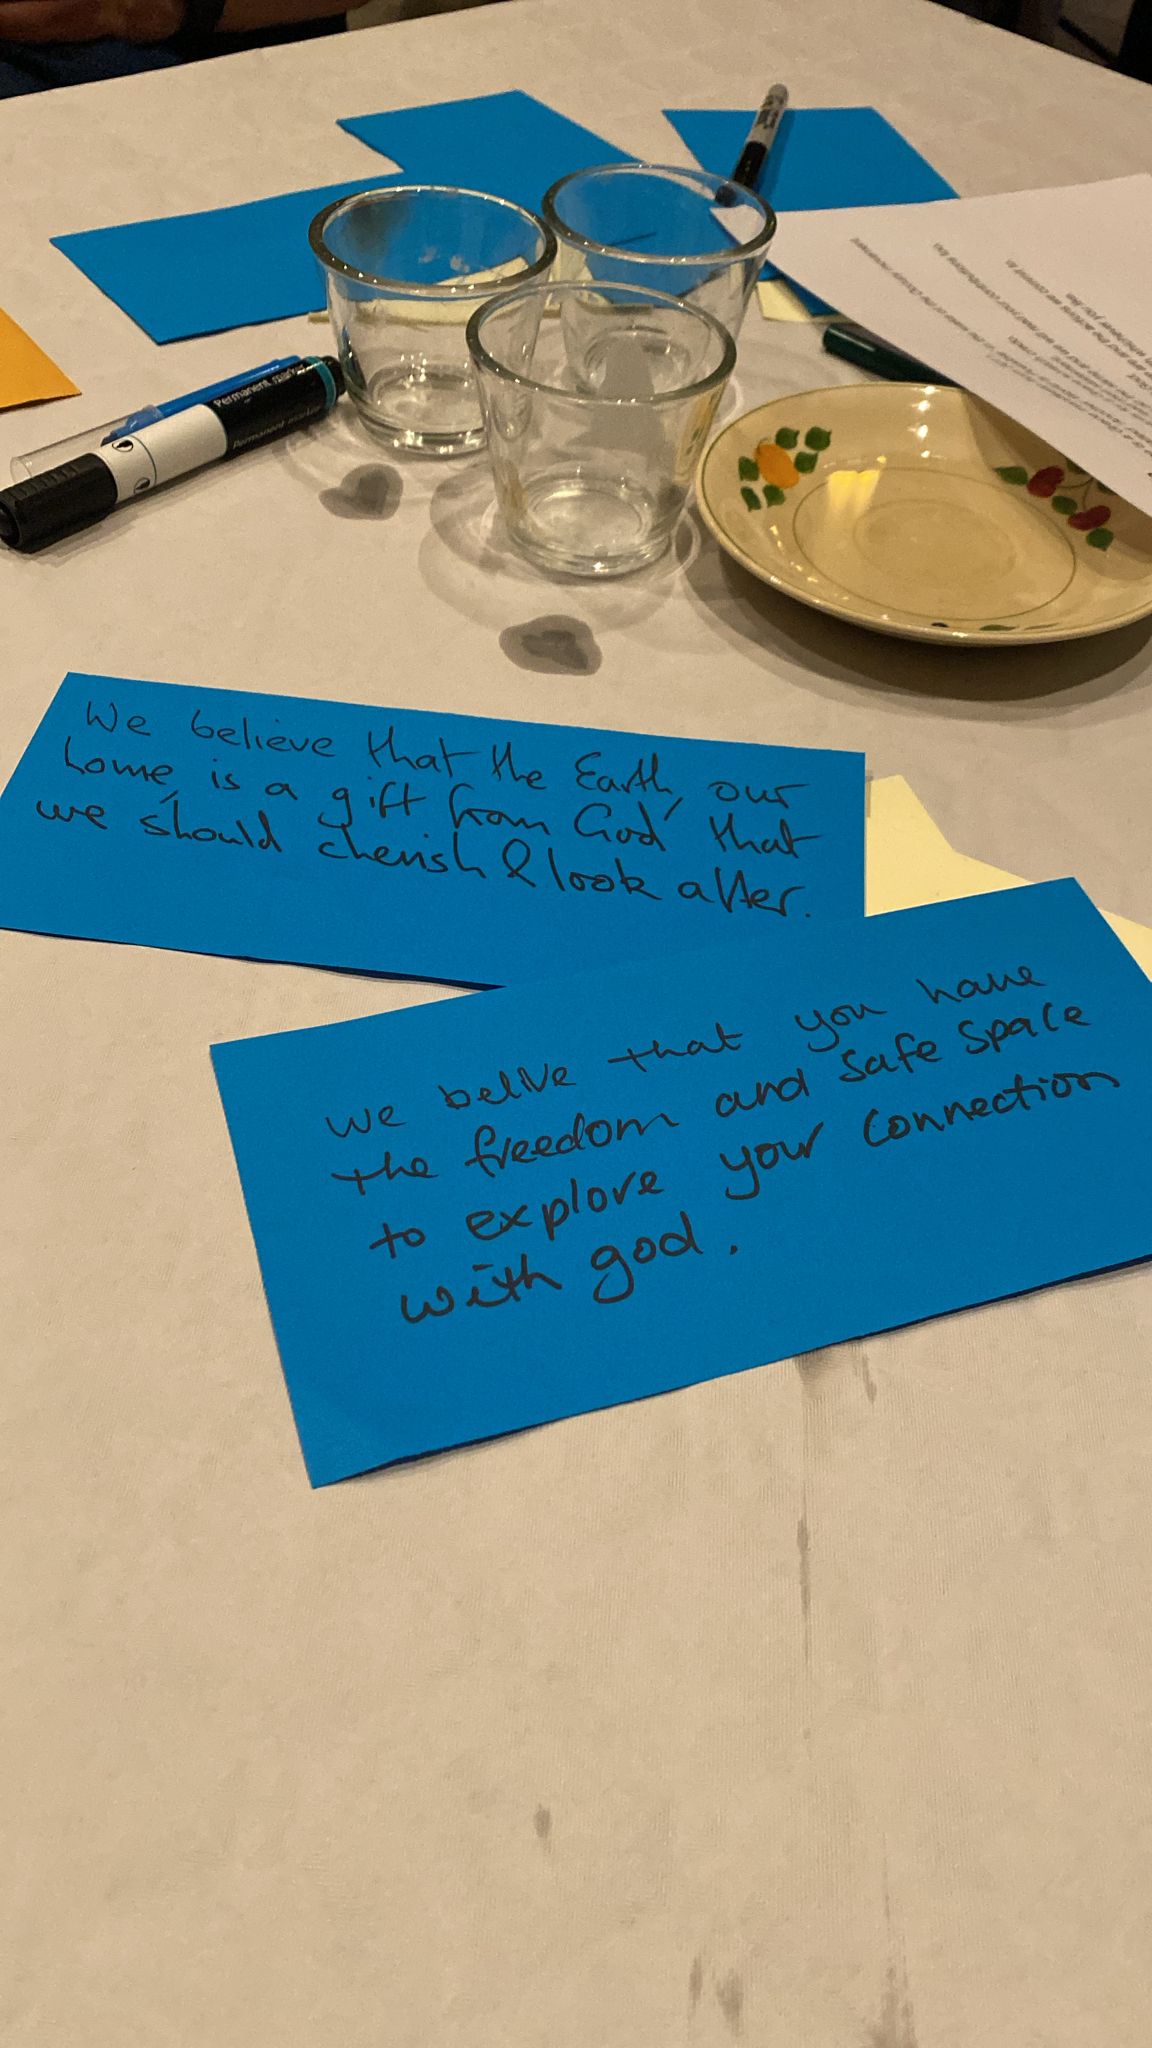 Permanent marker
Permanent marker
We believe that the Earth, our
home, is a gift from God that
we should cherish & look after.
we belive that you have
the freedom and safe space
to explore your connection
with god.